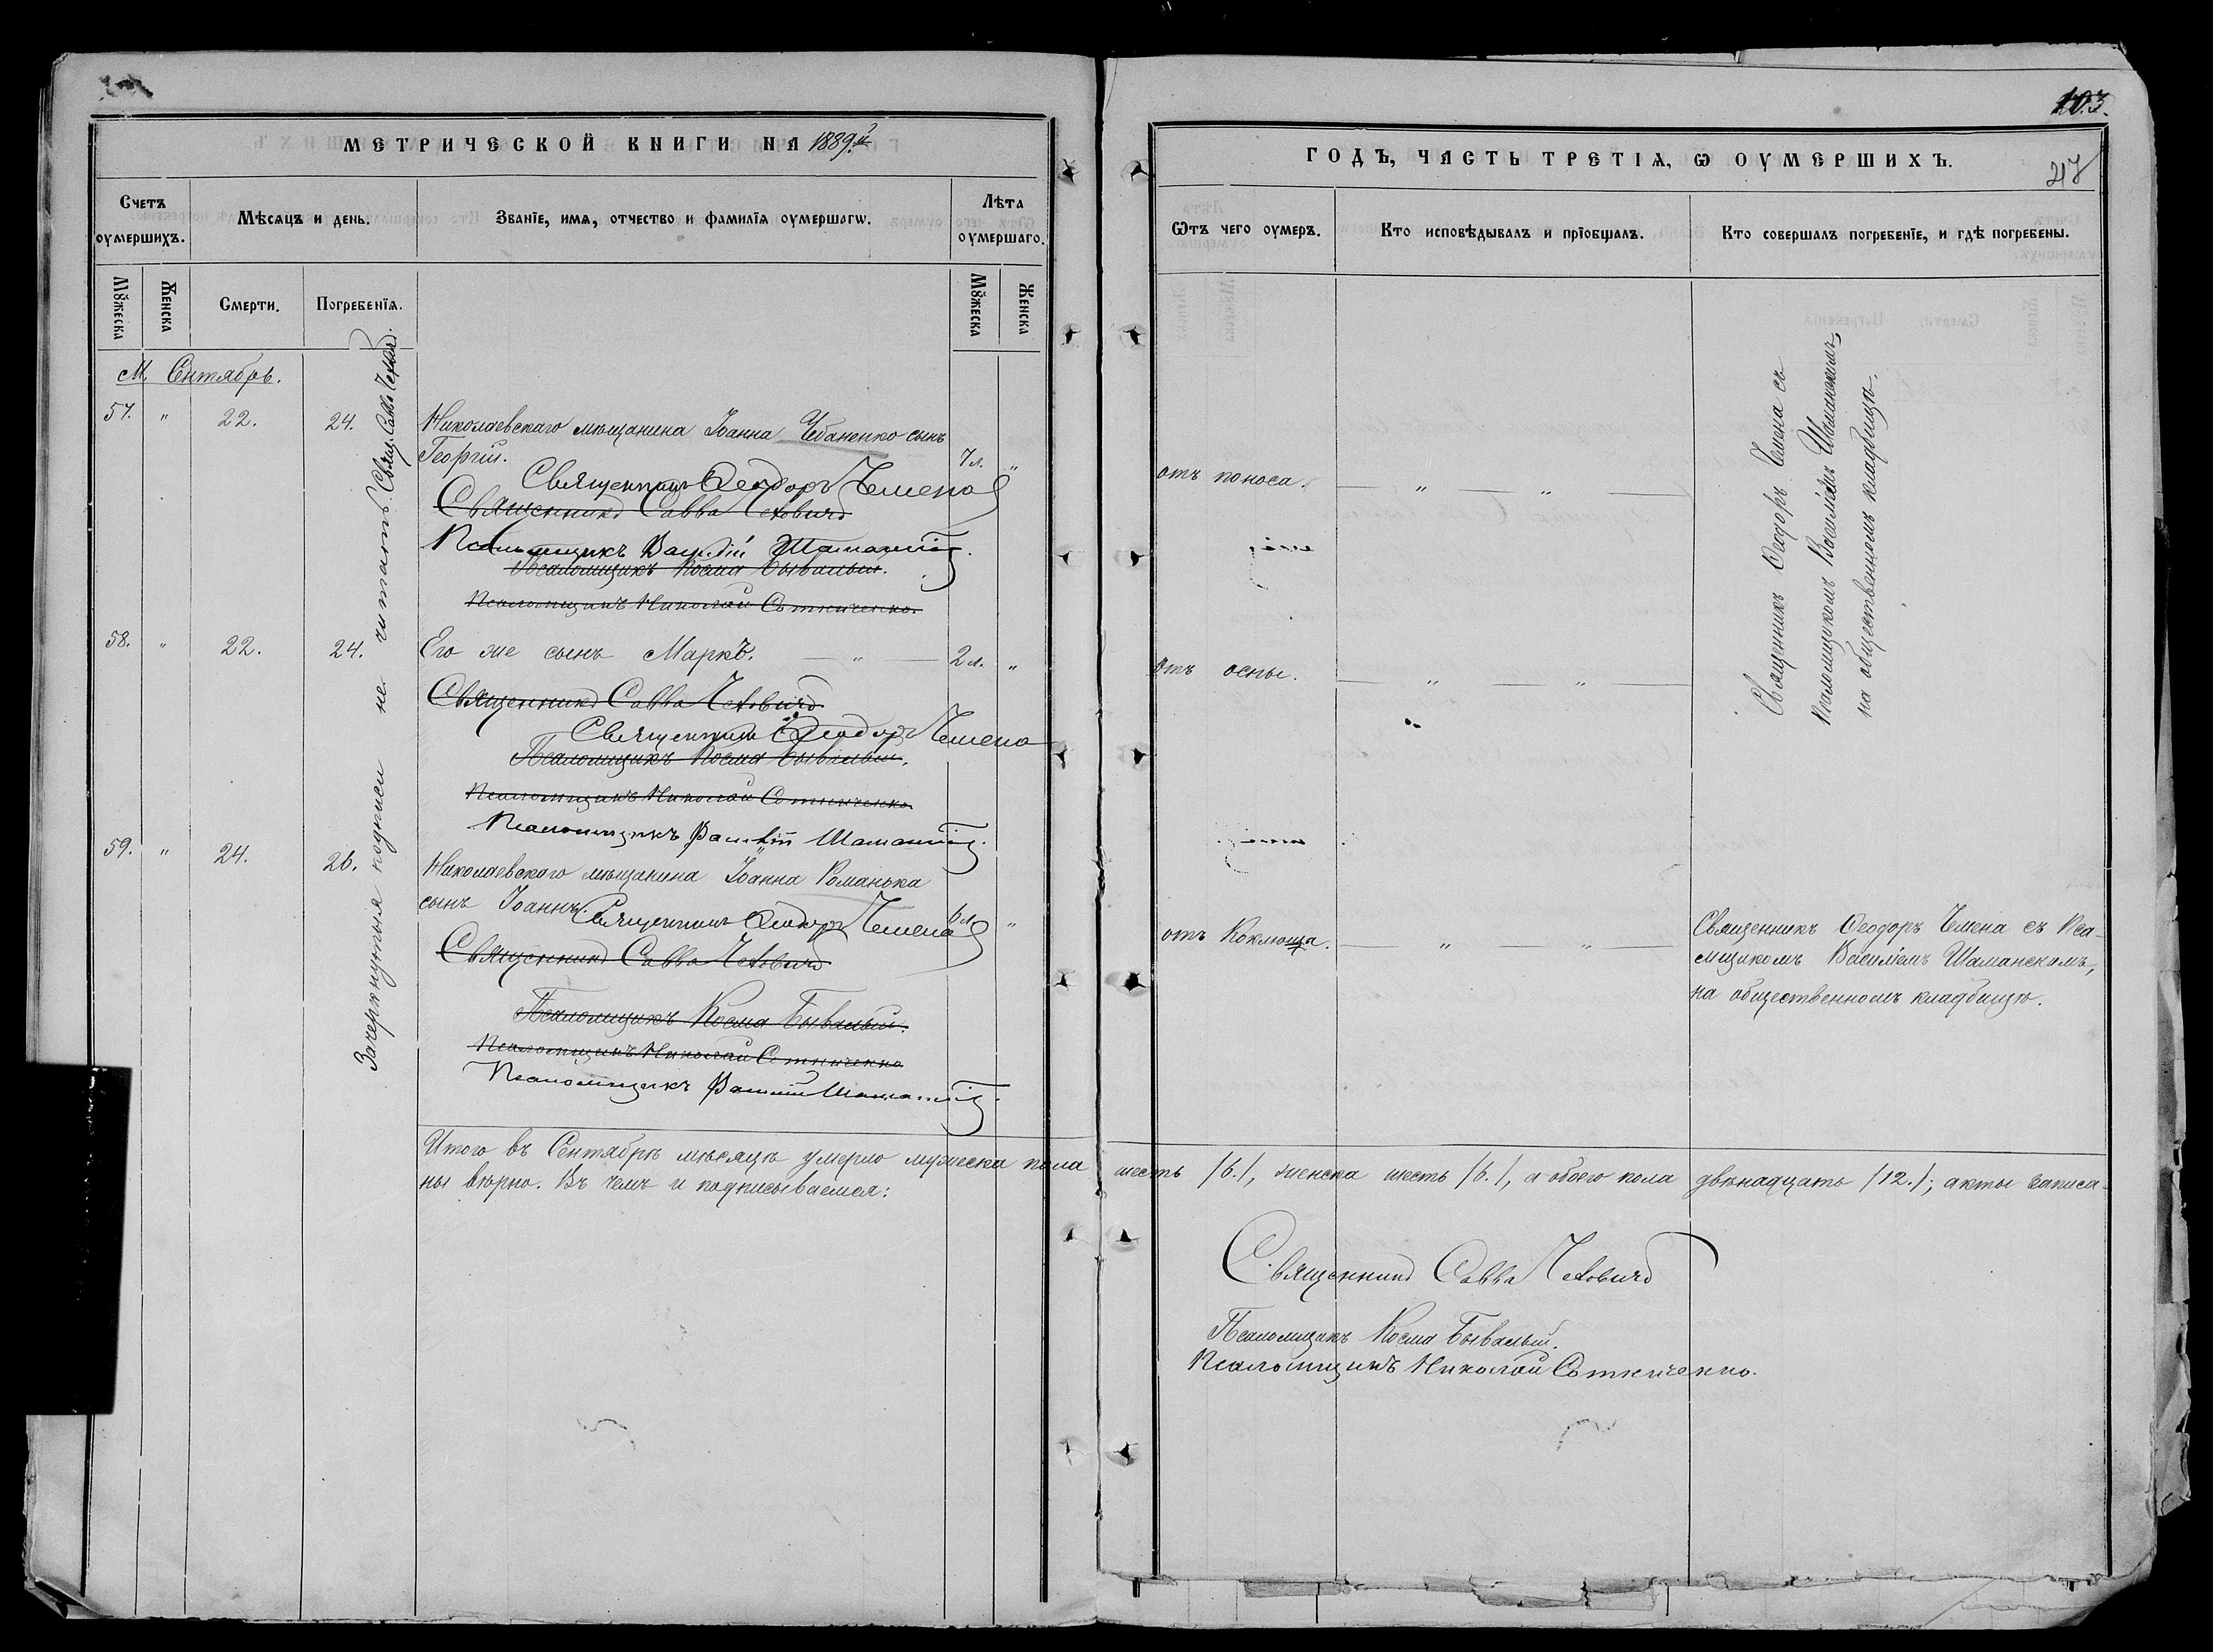 МЕТРИЧЕСКОЙ КНИГИ НА 1889й
Счетъ оумершихъ.
Мѣсяцъ и день.
Званїе, имя, отчество и фамилїя оумершагѡ.
Лѣта оумершаго.
Мꙋжеска
Женска
Смерти.
Погребенїя.
Мꙋжеска
Женска
М. Сентябрь.
57. " 22. 24. Николаевскаго мѣщанина Іоанна Чебаненко сынъ
Георгій. 7 л. "
Священникъ Ѳеодоръ Чемена
Священникъ Савва Чехович
Псаломщикъ Василій Шаманскій.
Псаломщикъ Косма Бывалый.
Псаломщикъ Николай Сотниченко.
58. " 22. 24. Его же сынъ Маркъ. — " — 2 л. "
Священникъ Савва Чехович
Священникъ Ѳеодоръ Чемена
Псаломщикъ Косма Бывалый.
Псаломщикъ Николай Сотниченко
Псаломщикъ Василій Шаманскій.
59. " 24. 26. Николаевскаго мѣщанина Іоанна Романька
сынъ Іоаннъ. 6 л. "
Священникъ Ѳеодоръ Чемена
Священникъ Савва Чехович
Псаломщикъ Косма Бывалый.
Псаломщикъ Николай Сотниченко
Псаломщикъ Василій Шаманскій.
Зачеркнутыя подписи не читать. Свящ. Савва
Итого въ Сентябрѣ мѣсяцѣ умерло мужеска пола
ны вѣрно. Въ чемъ и подписываемся:
103.
ГОДЪ, ЧАСТЬ ТРЕТІЯ, Ѡ ОУМЕРШИХЪ.
217
Ѿтъ чего оумеръ.
Кто исповѣдывалъ и прїобщалъ.
Кто совершалъ погребенїе, и гдѣ погребены.
отъ поноса. — " — " —
Священникъ Ѳеодоръ Чемена съ
Псаломщикомъ Василіемъ Шаманскимъ,
на общественномъ кладбищѣ.
отъ оспы. — " — " —
отъ Коклюша. — " — " —
Священникъ Ѳеодоръ Чемена съ Пса-
мщикомъ Василіемъ Шаманскимъ,
на общественномъ кладбищѣ.
шесть /6./, женска шесть /6./, а обоего пола двѣнадцать /12./; акты записа-
Священникъ Савва Чехович
Псаломщикъ Косма Бывалый.
Псаломщикъ Николай Сотниченко.